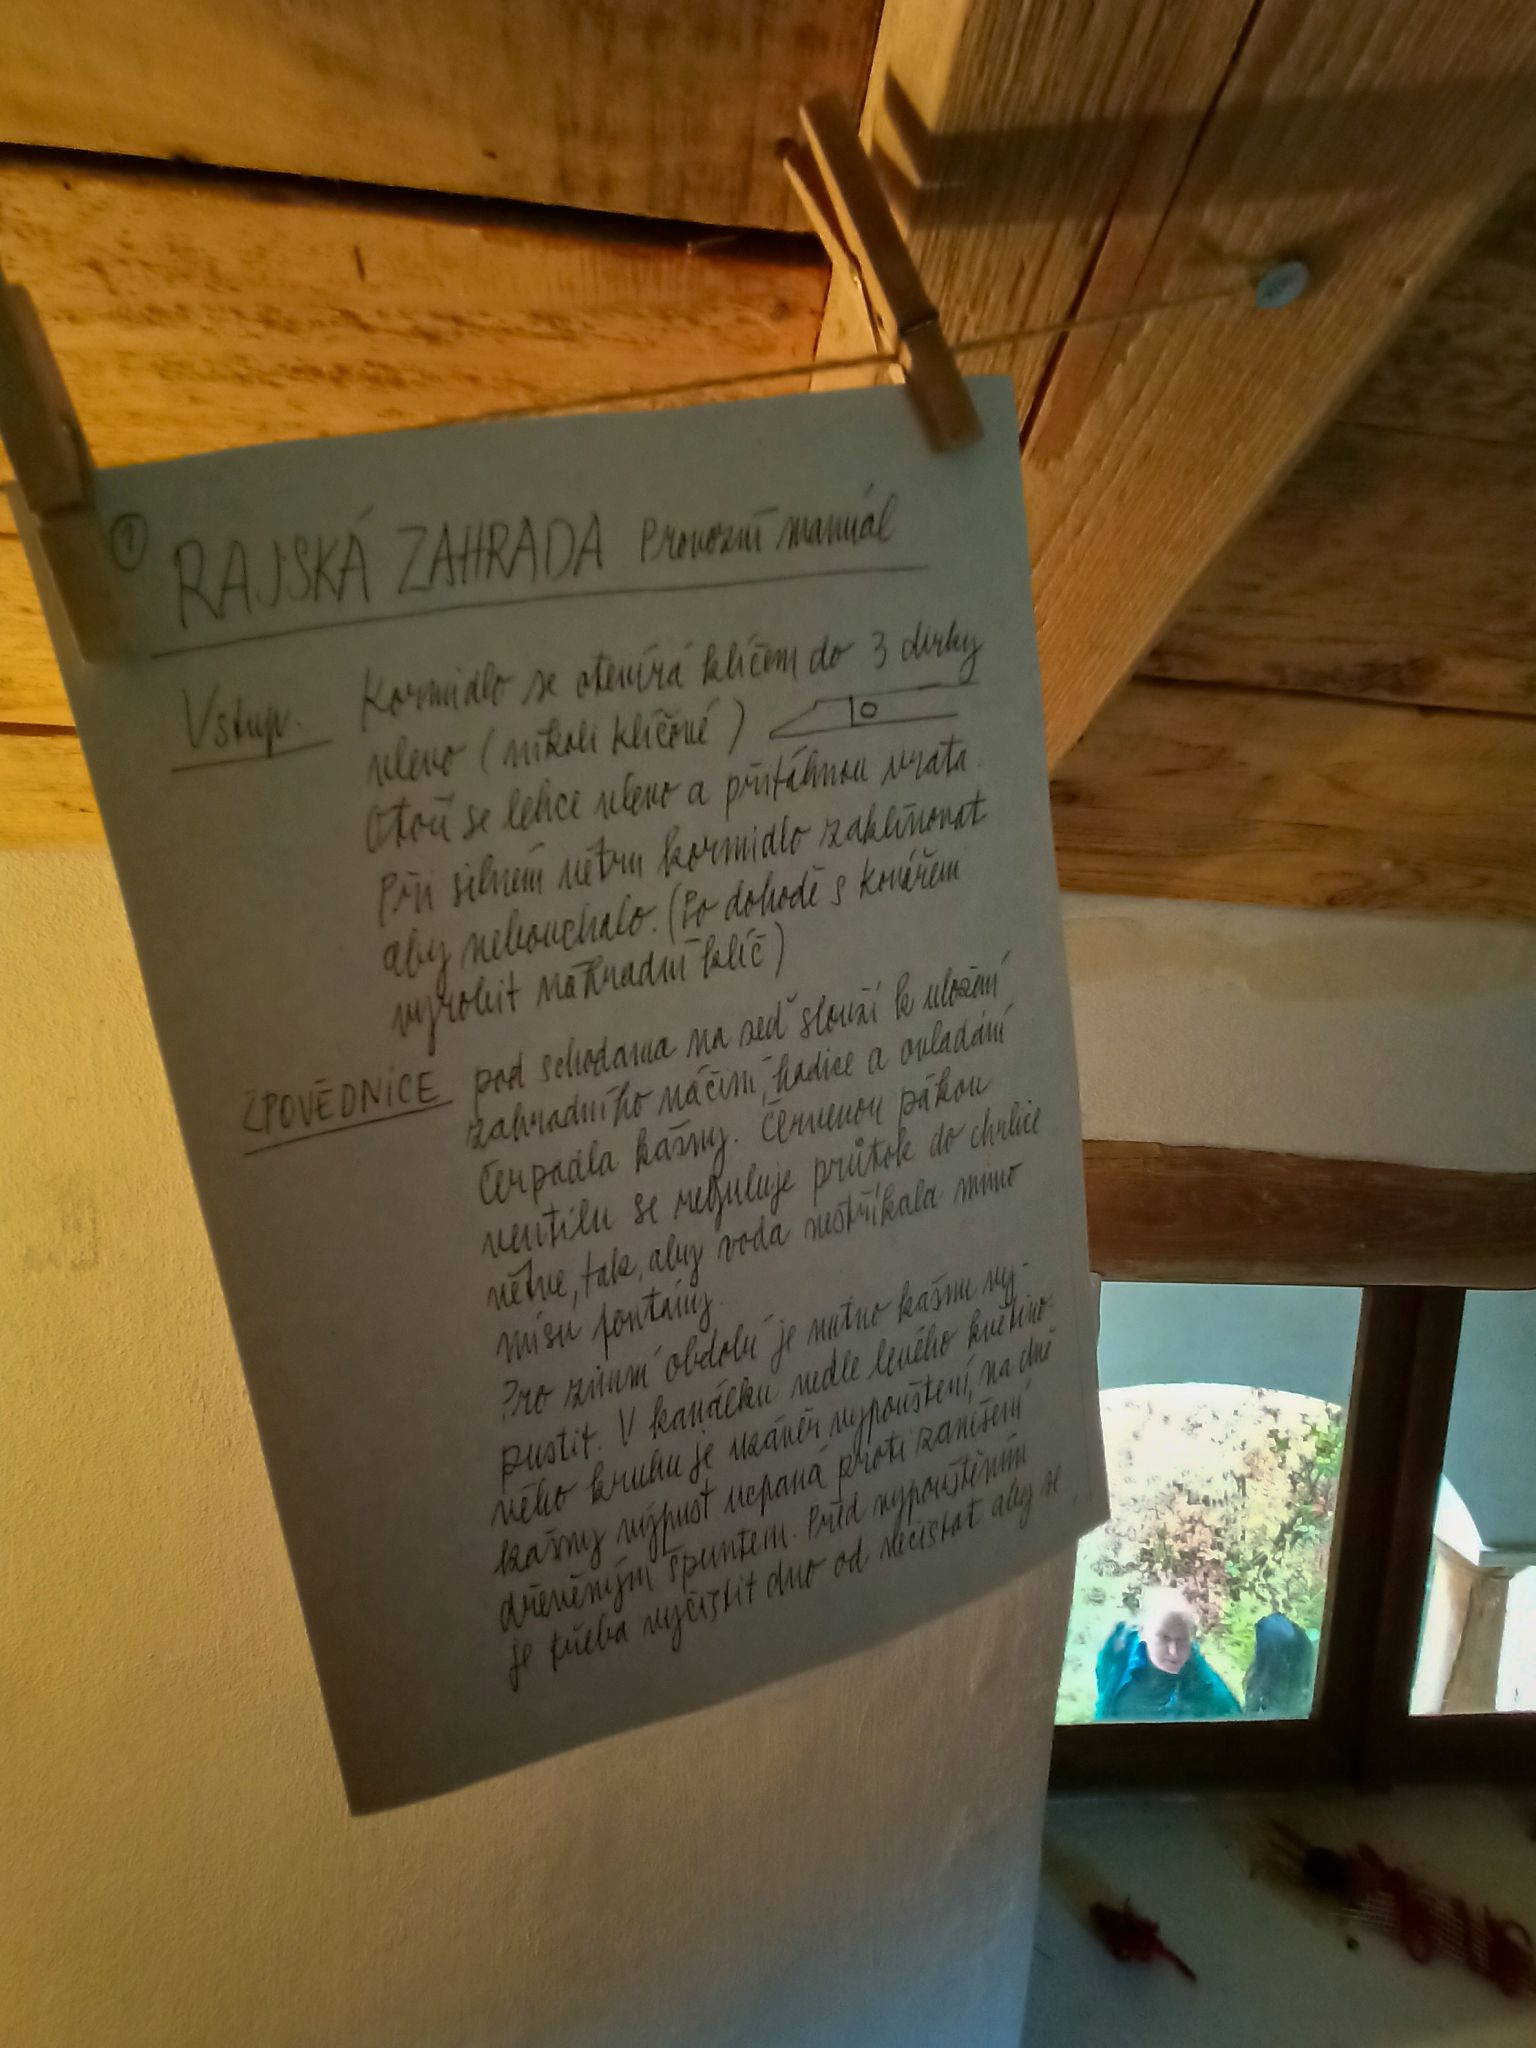 ① RAJSKÁ ZAHRADA Provozní manuál
Vstup. Kormidlo se otevírá klíčem do 3 dírky
vlevo (nikoli klíčové)
Otočí se lehce vlevo a přitáhnou vrata.
Při silném větru kormidlo zaklínovat
aby nebouchalo. (Po dohodě s kovářem
vyrobit náhradní klíč)
ZPOVĚDNICE pod schodama na zeď slouží k uložení
zahradního náčiní, hadice a ovládání
čerpadla kašny. Červenou pákou
ventilu se reguluje průtok do chrliče
větve, tak, aby voda nestříkala mimo
mísu fontány.
Pro zimní období je nutno kašnu vy-
pustit. V kanálku vedle levého květino-
vého kruhu je uzávěr vypouštení, na dně
kašny výpusť ucpaná proti zanešení
dřevěným špuntem. Před vypouštěním
je třeba vyčistit dno od nečistot aby se